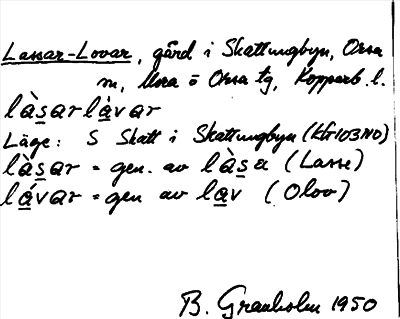 Lassar-Lovar, gård i Skattungbyn, Orsa
m, Mora o Orsa tg, Kopparb. l.
làsarlàvar
Läge: S Skatt i Skattungbyn (Kfr103NO)
làsar = gen. av làsa (Lasse)
lávar = gen av lav (Olov)
B. Granholm 1950